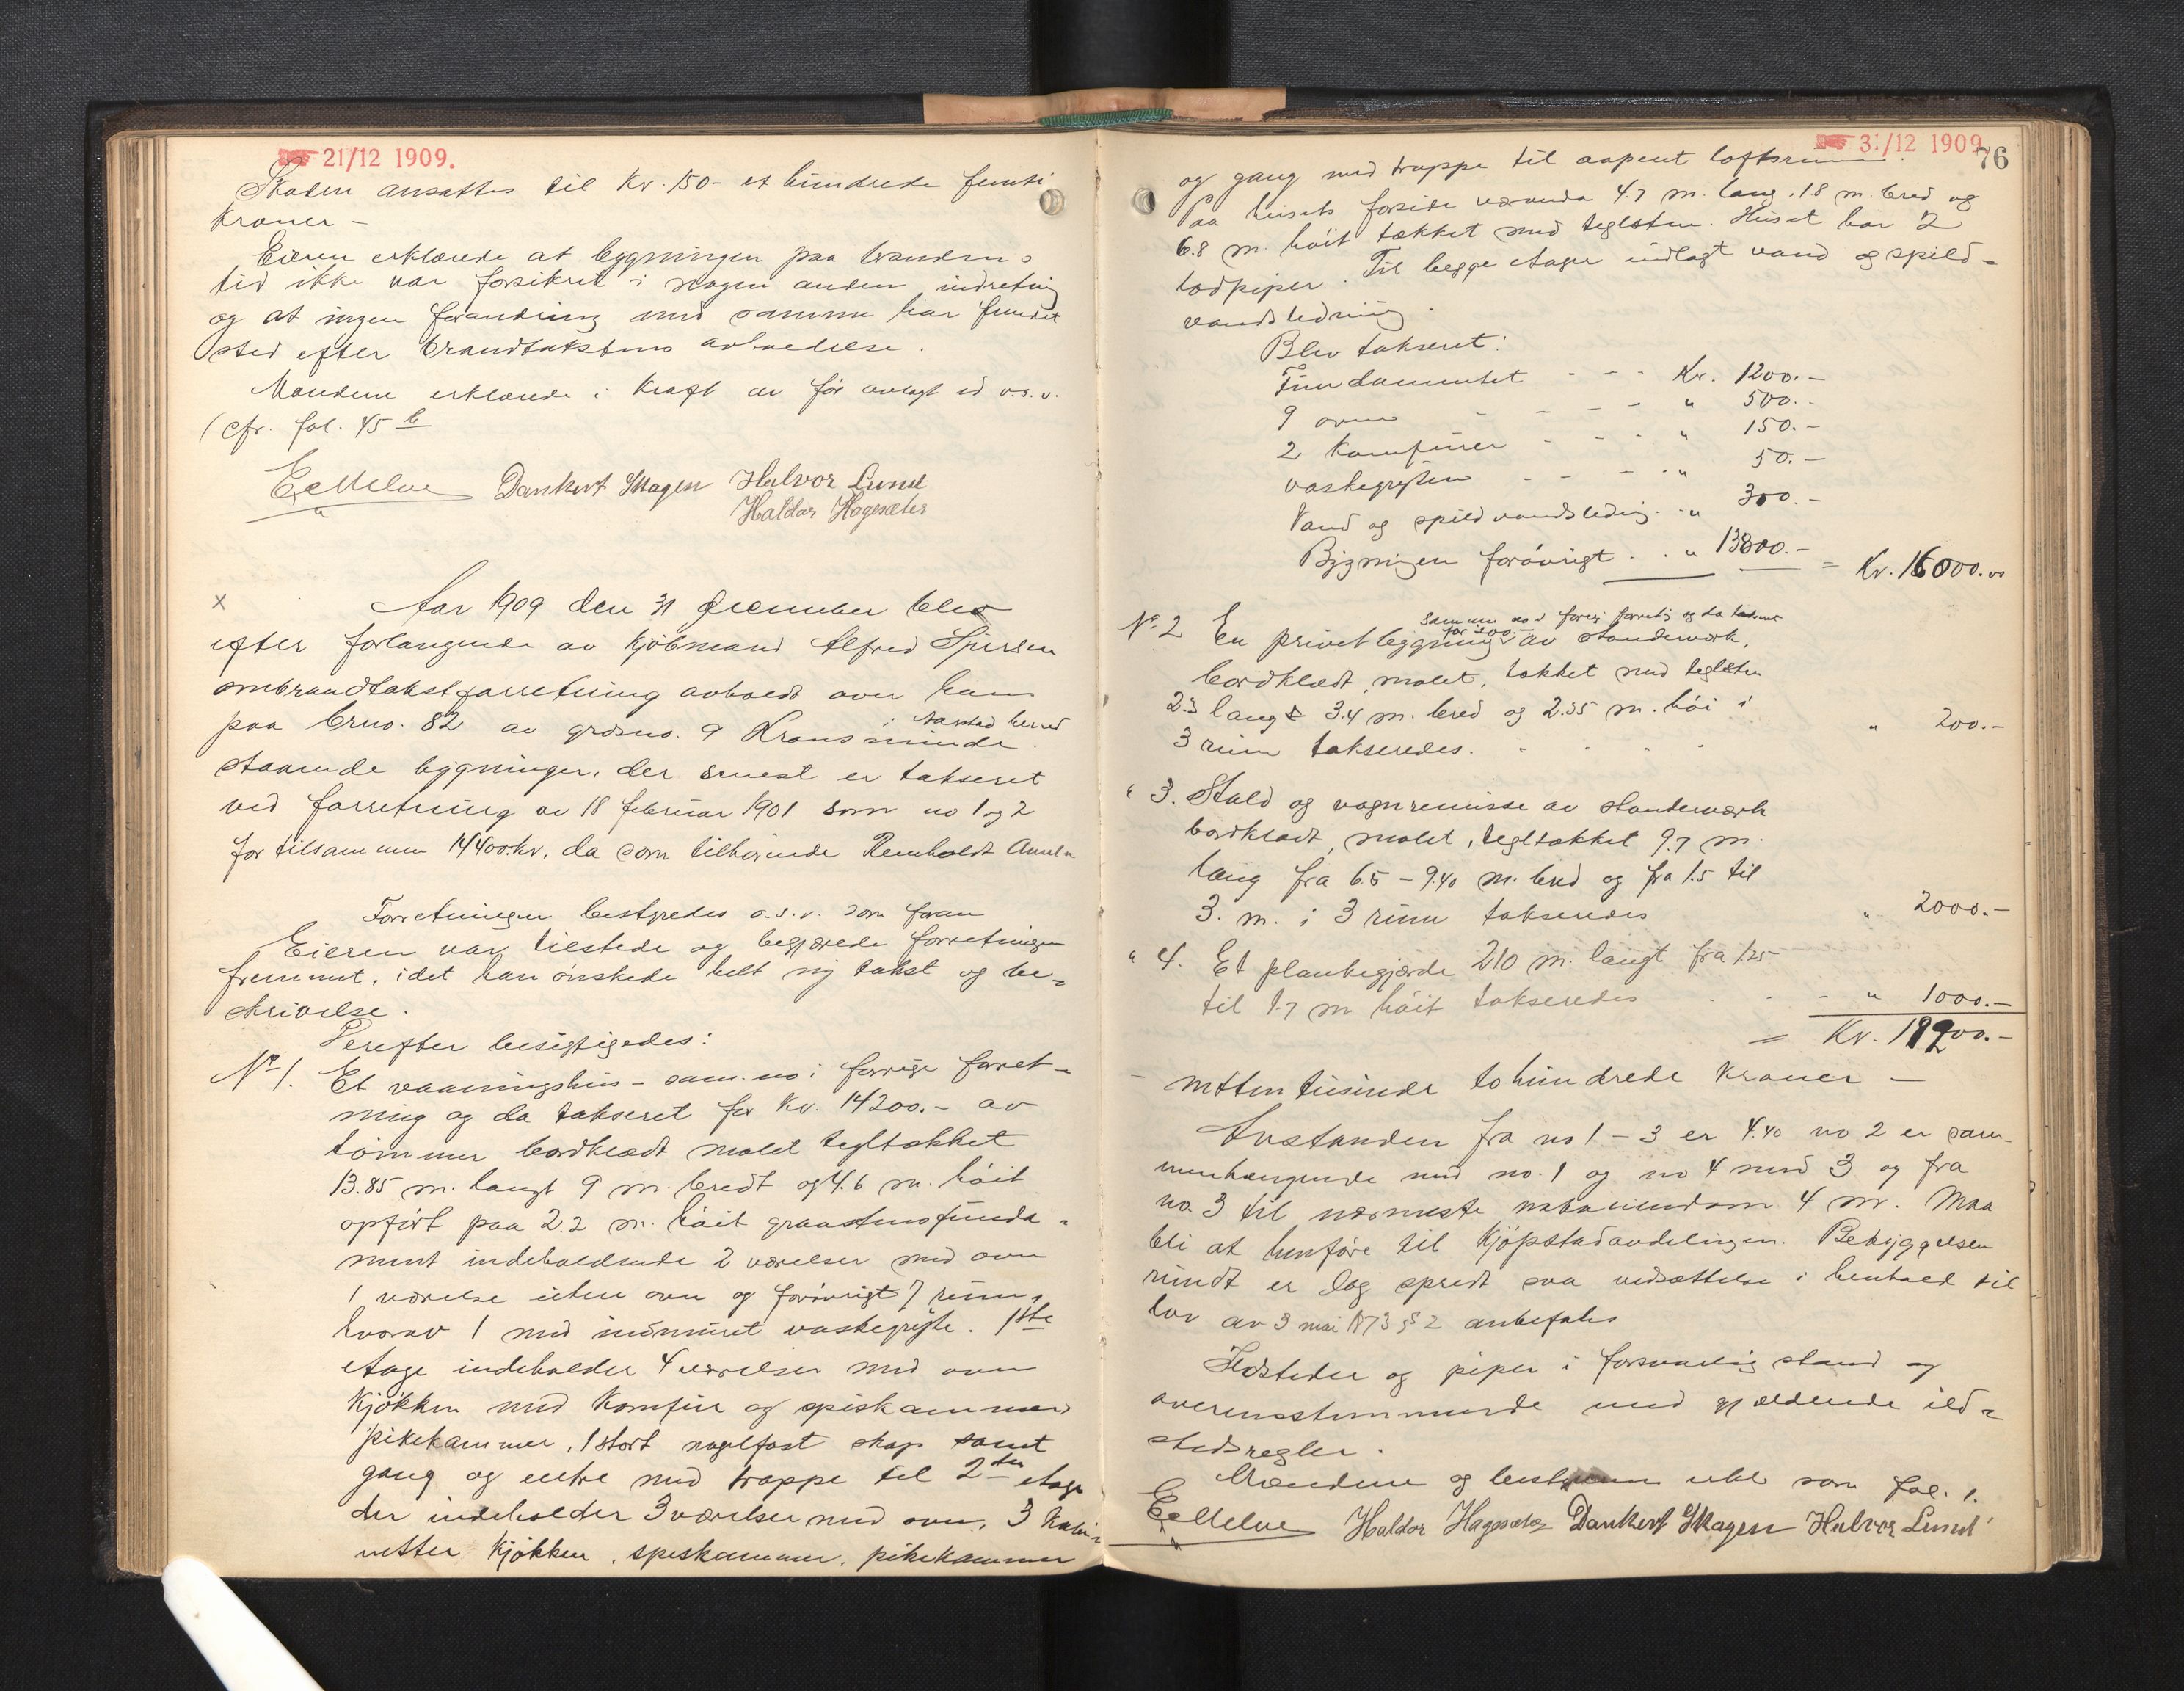 21/12 1909.
Skaden ansattes til Kr. 150 - et hundrede femti
Kroner -
Eieren erklærede at bygningen paa brandens
tid ikke var forsikret i nogen anden indretning
og at ingen forandring med samme har fundet
sted efter brandtakstens avholdelse.
Mændene erklærede i kraft av før avlagt ed o.s.v.
(cfr. fol. 45 b
Dankert Skagen Halvor Lund
Haldor Hagesæter
x
Aar 1909 den 31 december blev
efter forlangende av Kjöbmand Alfred
ombrandtakstforretning avholdt over hans
paa brno. 82 av grdsno. 9 Kransminde i herred
staaende bygninger, der senest er takseret
ved forretning av 18 februar 1901 som no 1 og 2
for tilsammen 14400.kr. da som tilhörende
Forretningen bestyredes o.s.v. som foran
Eieren var tilstede og begjærede forretningen
fremmet, idet han önskede helt ny takst og be-
skrivelse.
Derefter besigtigedes:
No 1. Et vaaningshus - sam. no i forrige forret-
ning og da takseret for Kr. 14200.- av
tömmer bordklædt malet tegltækket
13.85 m. langt 9 m. bredt og 4.6 m. höit
opfört paa 2.2 m. höit graastensfunda-
ment indeholdende 2 værelser med ovn
1 værelse uten ovn og forövrigt 7 rum,
hvorav 1 med indmuret vaskegryte. 1ste
etage indeholder 4 værelser med ovn
Kjökken med Komfur og spiskammer
pikekammer, 1 stort nagelfast skap samt
gang og entre med trappe til 2den etage
der indeholder 3 værelser med ovn, 3 Kabi-
netter Kjökken, speskammer, pikekammer
31/12 1909
76
og gang med trappe til aapent loftsrum.
Paa husets forside veranda 4.7 m. lang, 1.8 m. bred og
6.8 m. höit tækket med teglsten. Huset har 2
lodpiper. Til begge etager indlagt vand og spild-
vandsledning.
Blev takseret:
Fundamentet - - - Kr. 1200.-
9 ovne - - - - " 500.-
2 Komfurer - - - " 150.-
vaskegryten - - - " 50.-
Vand og spildvandsledning - " 300.-
Bygningen forövrigt . . " 13800.- = Kr. 16000.00
samme no i forrige forretn. og da takseret
for 200.-
No 2 En privetbygning av stenderværk,
bordklædt, malet, tækket med teglsten
2.3 lang 3.4 m. bred og 2.35 m. höi i
3 rum takseredes. - - - - " 200.-
" 3. Stald og vognremisse av stenderværk
bordklædt, malet, tegltækket 9.7 m.
lang fra 6.5 - 9.40 m. bred og fra 1.5 til
3. m. i 3 rum takseredes " 2000.-
" 4. Et plankegjærde 210 m. langt fra 1.25
til 1.7 m höit takseredes - - - " 1000.-
= Kr. 19200.-
- nitten tusinde tohundrede Kroner -
Avstanden fra no 1 - 3 er 4.40 no 2 er sam-
menhængende med no. 1 og no 4 med 3 og fra
no 3 til nærmeste naboeiendom 4 m. Maa
bli at henföre til Kjöpstadavdelingen. Bebyggelsen
rundt er dog spredt saa nedsættelse i henhold til
lov av 3 mai 1873 § 2 anbefales
Ildsteder og piper i forsvarlig stand og
overensstemmende med gjældende ild-
stedsregler.
Mændene og som fol. 1.
Haldor Hagesæter Dankert Skagen Halvor Lund